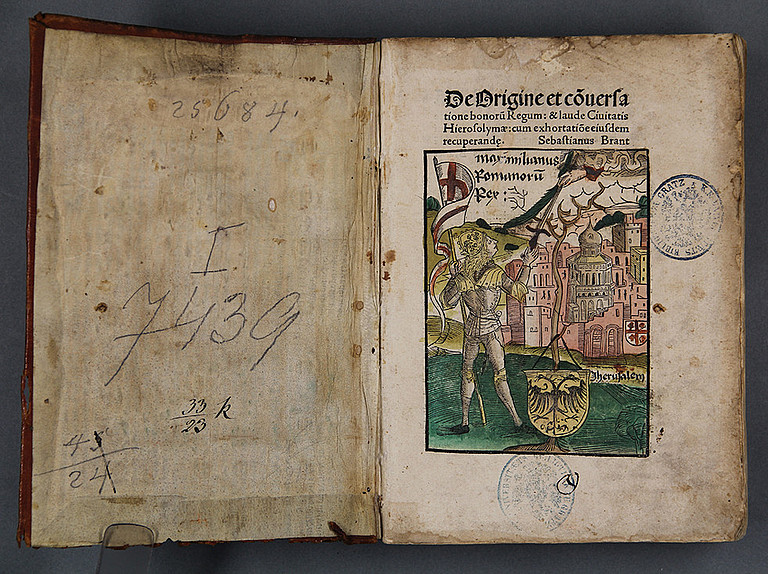 25684.
I
7439
33
23 k
45
24
De Origine et cõuersa
tione bonorũ Regum: & laude Ciuitatis
Hierosolymæ: cum exhortatiõe eiusdem
recuperandę. Sebastianus Brant
maximilianus
Romanorũ
Rex :
Jherusalem